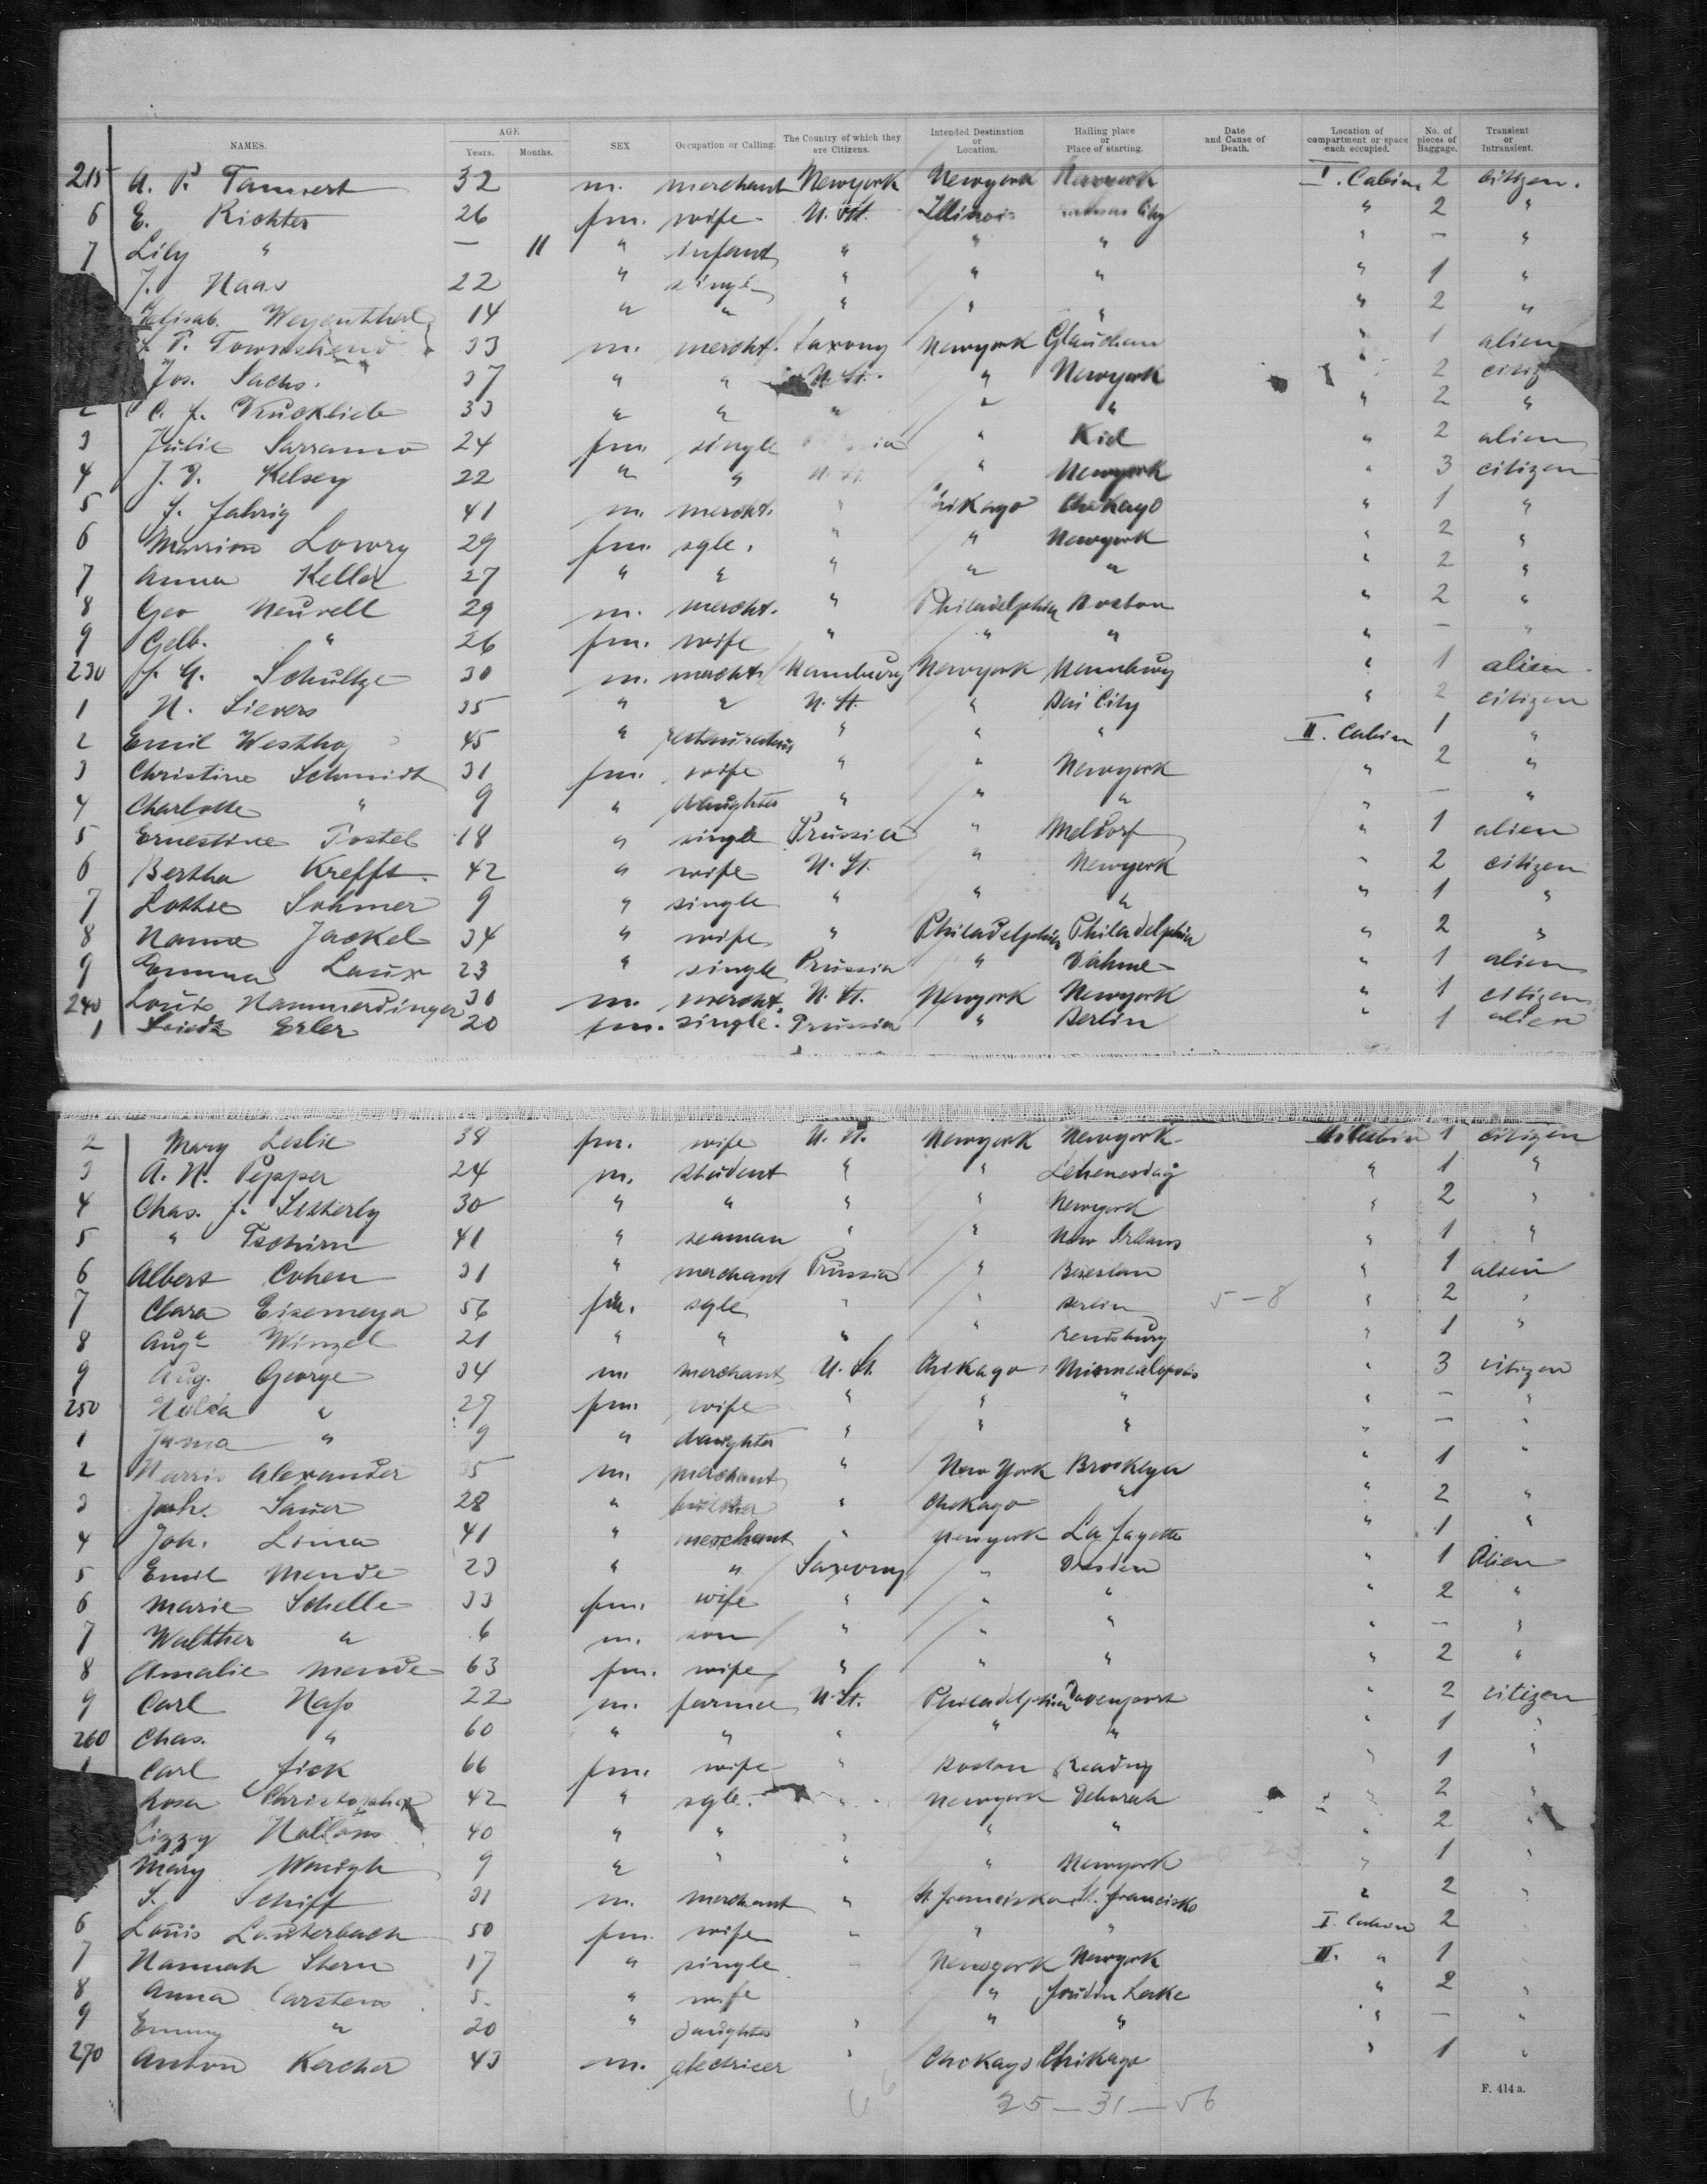 NAMES. AGE Years. Months. SEX Occupation or Calling. The Country of which they are Citizens. Intended Destination or Location. Hailing place or Place of starting. Date and Cause of Death. Location of compartment or space each occupied. No. of pieces of Baggage. Transient or Intransient.
215 A. P. Tannert 32 m. merchant Newyork Newyork Newyork I. Cabin 2 citizen.
6 E. Richter 26 fm. wife U. St. Illinois Kansas City " 2 "
7 Lily " — 11 " infant " " " " — "
J. Haas 22 " single " " " " 1 "
Elisab. 14 " " " " " " 2 "
P. Townshend 33 m. mercht. Saxony Newyork Glauchau " 1 alien
Jos. Sachs. 37 " " U. St. " Newyork " 2
2 C. F. Drucklieb 33 " " " " " " 2 "
3 Julie Sarramo 24 fm. single " Kiel " 2 alien
4 J. D. Kelsey 22 " " U. St. " Newyork " 3 citizen
5 F. Fahrig 41 m. mercht. " Chikago Chikago " 1 "
6 Marrion Lowry 29 fm. sgle. " " Newyork " 2 "
7 Anna Keller 27 " " " " " " 2 "
8 Geo Neuvell 29 m. mercht. " Philadelphia Boston " 2 "
9 Gelb. " 26 fm. wife " " " " — "
230 F. G. Schultze 30 m. mercht. Hamburg Newyork Hamburg " 1 alien
1 H. Sievers 35 " " U. St. " Bai City " 2 citizen
2 Emil 45 " " " " II. Cabin 1 "
3 Christine Schmidt 31 fm. wife " " Newyork " 2 "
4 Charlotte " 9 " daughter " " " " — "
5 Ernestine Postel 18 " single Prussia " Meldorf " 1 alien
6 Bertha Krefft 42 " wife U. St. " Newyork " 2 citizen
7 Lottie Sohmer 9 " single " " " " 1 "
8 Hanna Jackel 34 " wife " Philadelphia Philadelphia " 2 "
9 Emma Laux 23 " single Prussia " Dahme " 1 alien
240 Louis Hammerdinger 30 m. mercht. U. St. Newyork Newyork " 1 citizen
1 Frieda Erler 20 fm. single. Prussia " Berlin " 1 alien
2 Mary Leslie 38 fm. wife U. St. Newyork Newyork II Cabin 1 citizen
3 A. H. Pepper 24 m. student " " " 1 "
4 Chas. F. 30 " " " " Newyork " 2 "
5 " Tschirn 41 " seaman " " New Orleans " 1 "
6 Albert Cohen 31 " merchant Prussia " Breslau " 1 alien
7 Clara Eisemeyer 56 fm. sgle " " Berlin 5-8 " 2 "
8 Aug. Winzel 21 " " " " Rendsburg " 1 "
9 Aug. George 34 m. merchant U. St. Chikago Minnealopolis " 3 citizen
250 Hulda " 27 fm. wife " " " " — "
1 " 9 " daughter " " " " — "
2 Harris Alexander m. merchant " New York Brooklyn " 1 "
3 Joh. Sauer 28 " " Chikago " " 2 "
4 Joh. Lima 41 " merchant " Newyork La Fayette " 1 "
5 Emil Mende 23 " " Saxony " Dresden " 1 Alien
6 Marie Schelle 33 fm. wife " " " " 2 "
7 Walther " 6 m. son " " " " — "
8 Amalie Mende 63 fm. wife " " " " 2 "
9 Carl Hass 22 m. farmer U. St. Philadelphia Davenport " 2 citizen
260 Chas. " 60 " " " " " " 1 "
1 Carl Fick 66 fm. wife " Boston Reading " 1 "
Rosa Christopher 42 " sgle. " Newyork Dehorah " 2 "
Lizzy 40 " " " " " " 2 "
Mary Waugh 9 " " " " Newyork " 1 "
S. Schiff 31 m. merchant " St. Francisko St. Francisko " 2 "
6 Louis Lauterbach 50 fm. wife " " " I. Cabin 2
7 Hannah Stern 17 " single Newyork Newyork II. " 1
8 Anna Carstens 5 " wife " Lake " 2 "
9 Emmy " 20 " daughter " " " " — "
270 Anton Kercher 43 m. electricer " Chikago Chikago " 1 "
25 — 31 — 56
F. 414 a.